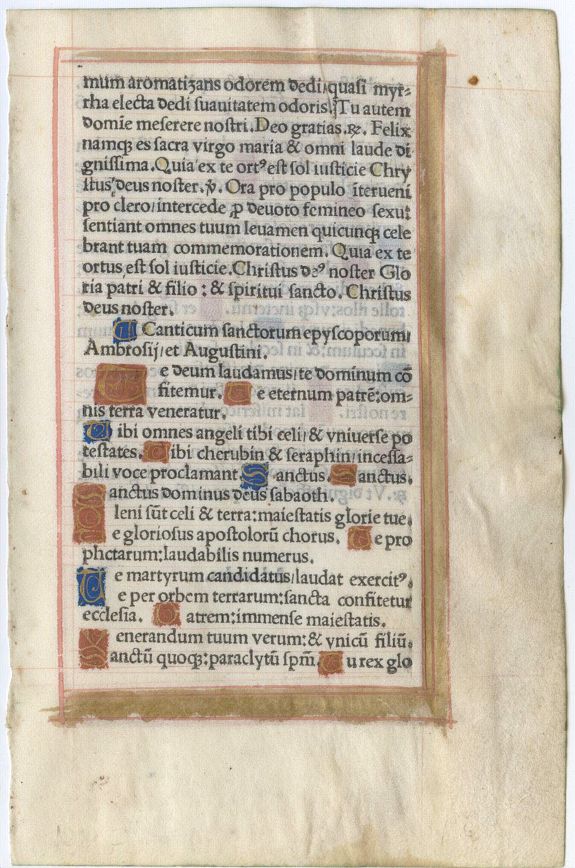 mum aromatizans odorem dedi/quasi myr⸗
rha electa dedi suauitatem odoris. Tu autem
domīe meserere nostri. Deo gratias. ℟. Felix
namqꝫ es sacra virgo maria & omni laude di
gnissima. Quia ex te ortꝰ est sol iusticie Chry
stus/deus noster. ℣. Ora pro populo īterueni
pro clero/intercede ꝓ deuoto femineo sexu:
sentiant omnes tuum leuamen quicunqꝫ cele
brant tuam commemorationem. Quia ex te
ortus est sol iusticie. Christus deꝰ noster Glo
ria patri & filio : & spiritui sancto. Christus
deus noster.
Canticum sanctorum epyscoporum/
Ambrosij/et Augustini.
T e deum laudamus/te dominum cō
fitemur. T e eternum patrē:om⸗
nis terra veneratur.
T ibi omnes angeli tibi celi/& vniuerse po
testates. T ibi cherubin & seraphin/incessa⸗
bili voce proclamant. S anctus. S anctus.
S anctus dominus deus sabaoth.
leni sūt celi & terra:maiestatis glorie tue.
e gloriosus apostolorū chorus. T e pro
phctarum:laudabilis numerus.
T e martyrum candidatus/laudat exercitꝰ.
e per orbem terrarum:sancta confitetur
ecclesia. P atrem:immense maiestatis.
enerandum tuum verum:& vnicū filiū.
S anctū quoqꝫ:paraclytū spm̄. T u rex glo